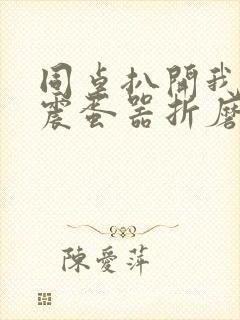 同卓扒開我
震蛋器折磨
陳愛萍